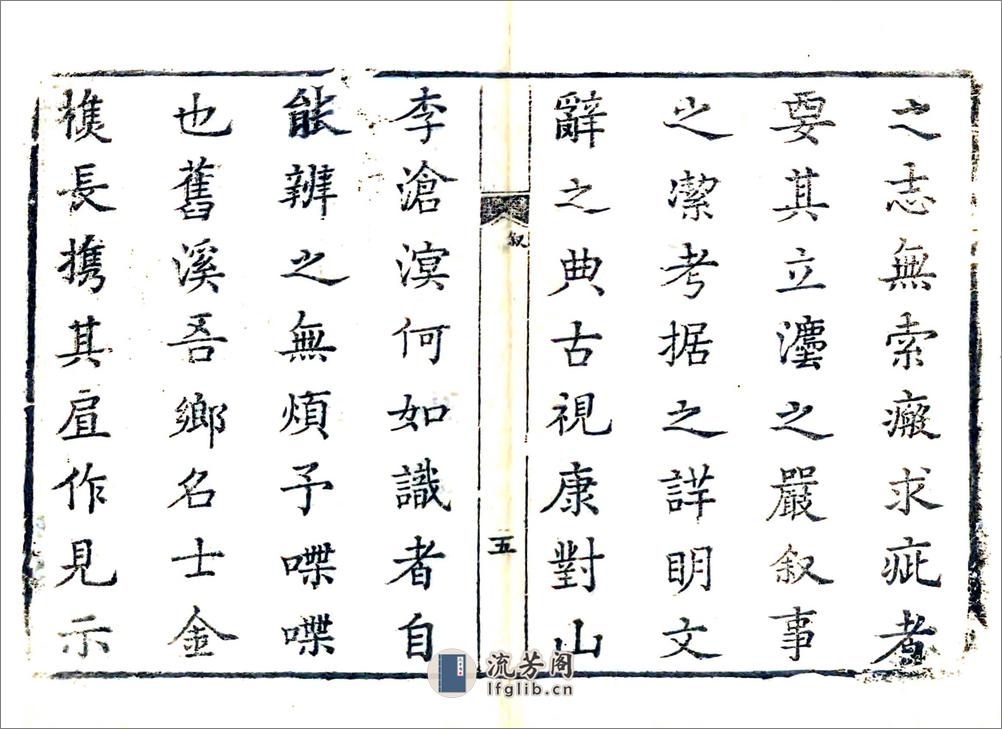 之志無索癥求疵者
要其立灋之嚴叙事
之潔考据之詳明文
辭之典古視康對山
叙
五
李滄溟何如識者自
能辨之無煩予喋喋
也舊溪吾鄉名士金
樵長携其眉作見示
流芳阁
lfglib.cn